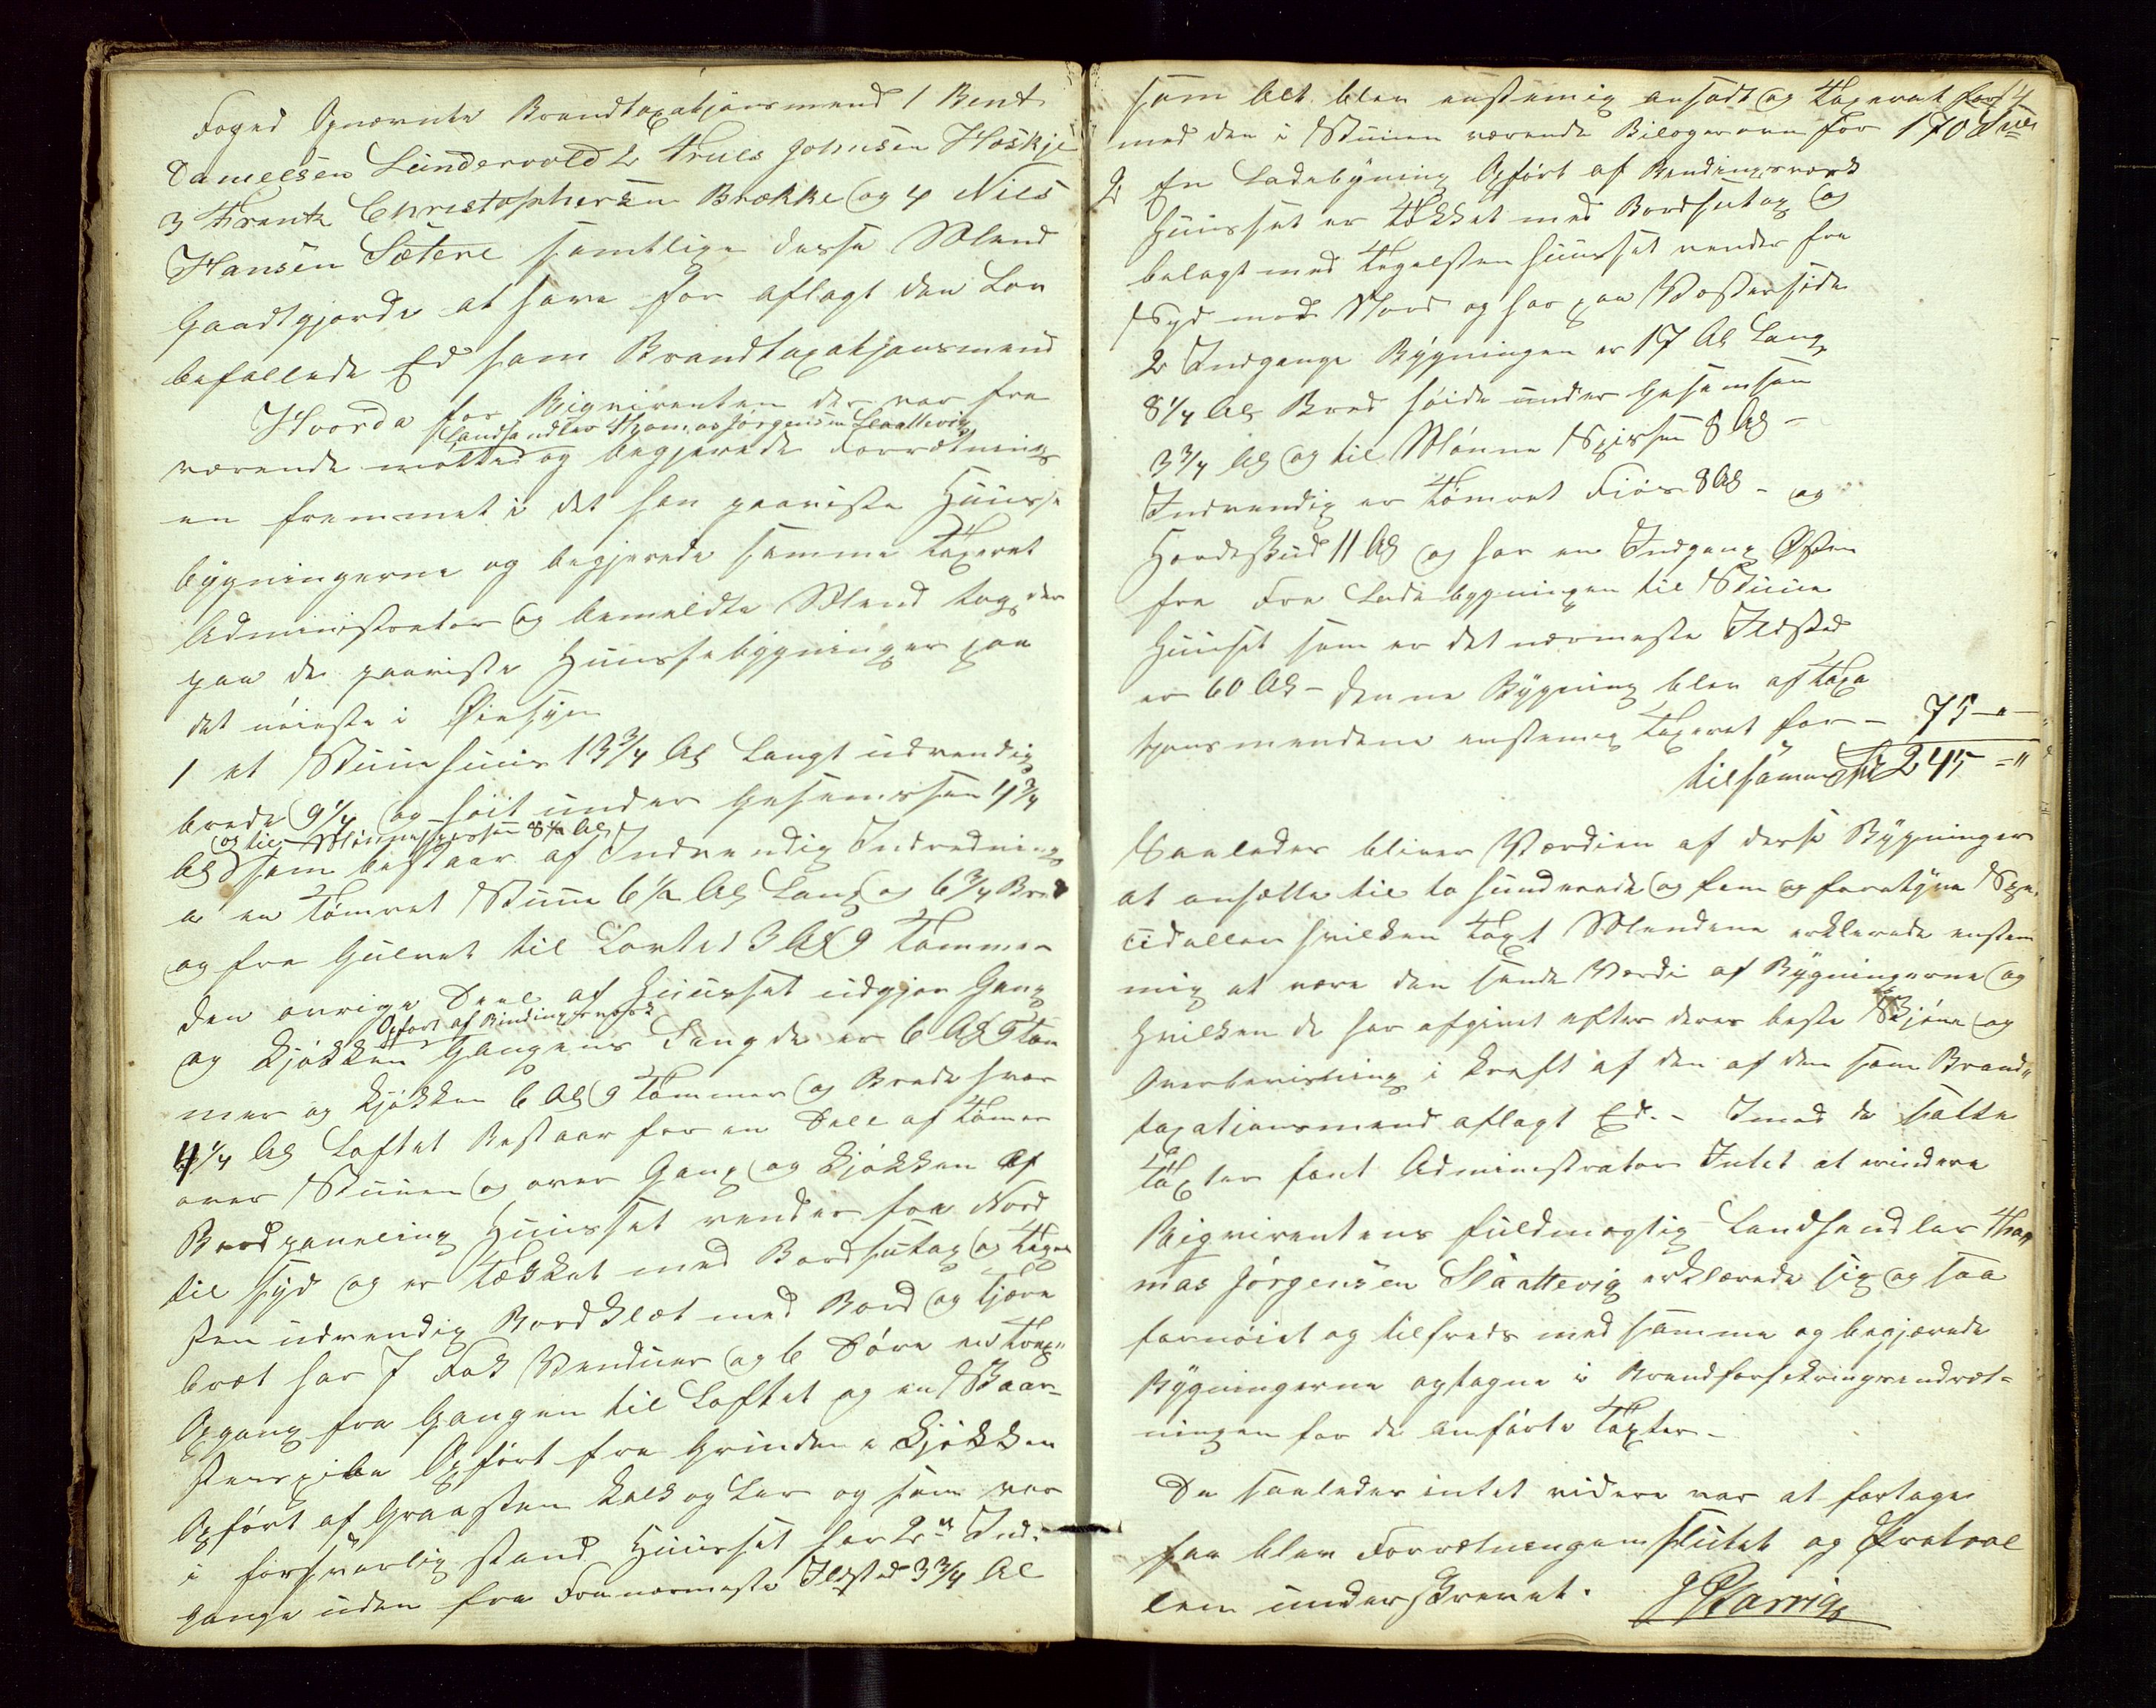 Foged Opnævnte Brandtaxationsmend 1 Bent
Danielsen Lundervold 2 Truls Johnsen Hoskje
3 Frentz Christophersen Brække og 4 Niels
Hansen Sætere samtlige disse Mend
Gaadtgjorde at have før aflagt den Lov
befallede Ed som Brandtaxationsmend
Hvorda for Reqvirenten der var fra
Landhandler Thomas Jørgensen Slaattevig
værende mötte og begjerede Forrætning
en fremmet i det han paaviste Huusse
bygningerne og begjerede samme Taxeret
Administrator og bemeldte Mend tog der
paa de paaviste Huussebygninger paa
det nöieste i Öiesyn
1 et Stuehuus 13 3/4 Al Langt udvendig
brede 9 1/4 og höit under Gesemssen 4 3/4
og til Mönnespissen 8 1/2 Al
Al som bestaar af Indvendig Indredning
a en Tömret Stuue 6 1/2 Al Lang og 6 3/4 Bred
og fra Gulvet til Loftet 3 Al 9 Tommer
den övrige Deel af Huusset udgjör Gang
Opfört af Bindingsværk
og Kjökken Gangens Længde er 6 Al 9 Tom
mer og Kjökken 6 Al 9 Tommer og Brede hver
4 1/4 Al Loftet Bestaar for en Deel af Tömer
over Stuuen og over Gang og Kjökken af
Bordpanneling Huusset vender fra Nord
til Syd og er Tækket med Bordsutag og Tegel
sten udvendig Bordklæt med Bord og Tjære
bræt har 7 Fak Venduer og 6 Döre en Trap"
Opgang fra Gangen til Loftet og en Skaar-
stenspibe Opfört fra Grunden i Kjökken
Opfört af Graasten Kalk og Ler og som var
i forsvarlig stand Huusset har 2de Ind-
gange uden fra Fra nærmeste Ildsted 3 3/4 Al
4
som Alt blev enstemig ansadt og Taxerat for
med den i Stuuen værende Bilegerovn for 170 Spd
2 En Ladebygning Opfört af Bindingsværk
Huusset er Tækket med Bordsutag og
belagt med Tegelsten Huusset vender fra
Syd mod Nord og har paa Vestersiide
2 Indgange Bygningen er 17 Al Lang
8 1/4 Al Bred höide under Gesemsen
3 3/4 Al og til Mönne Spissen 8 Al -
Indvendig er Tömret Fiös 8 Al - og
Hordeskud 11 Al og har en Indgang Östen
fra Fra Ladebygningen til Stuue
Huuset som er det nærmeste Ildsted
er 60 Al - denne Bygning blev af Taxa
tjonsmendene enstemig Taxeret for - 75 - " -
tilsammen Spd 245 = "
Saaledes bliver Værdien af disse Bygninger
at ansætte til to hunderede og fem og føretyve Spe
ciedaller hvilken Taxt Mendene erklerede enstem
mig at være den sande Værdi af Bygningerne og
hvilken de har afgivet efter deres beste Skjöne og
Overbevisning i kraft af den af dem som Brand"
taxationsmend aflagt Ed. - Imod de satte
Taxter fant Administrator Intet at erindere
Reqvirentens fuldmægtig Landhandler Tho"
mas Jørgensen Slaattevig erklærede sig og saa
fornöiet og tilfreds med samme og begjærede
Bygningerne optagne i Brandforsekringsindret=
ningen for de anförte Taxter -
Da saaledes intet videre var at foretage
saa blev Forretnengen sluttet og Protocol
len underskrevet.